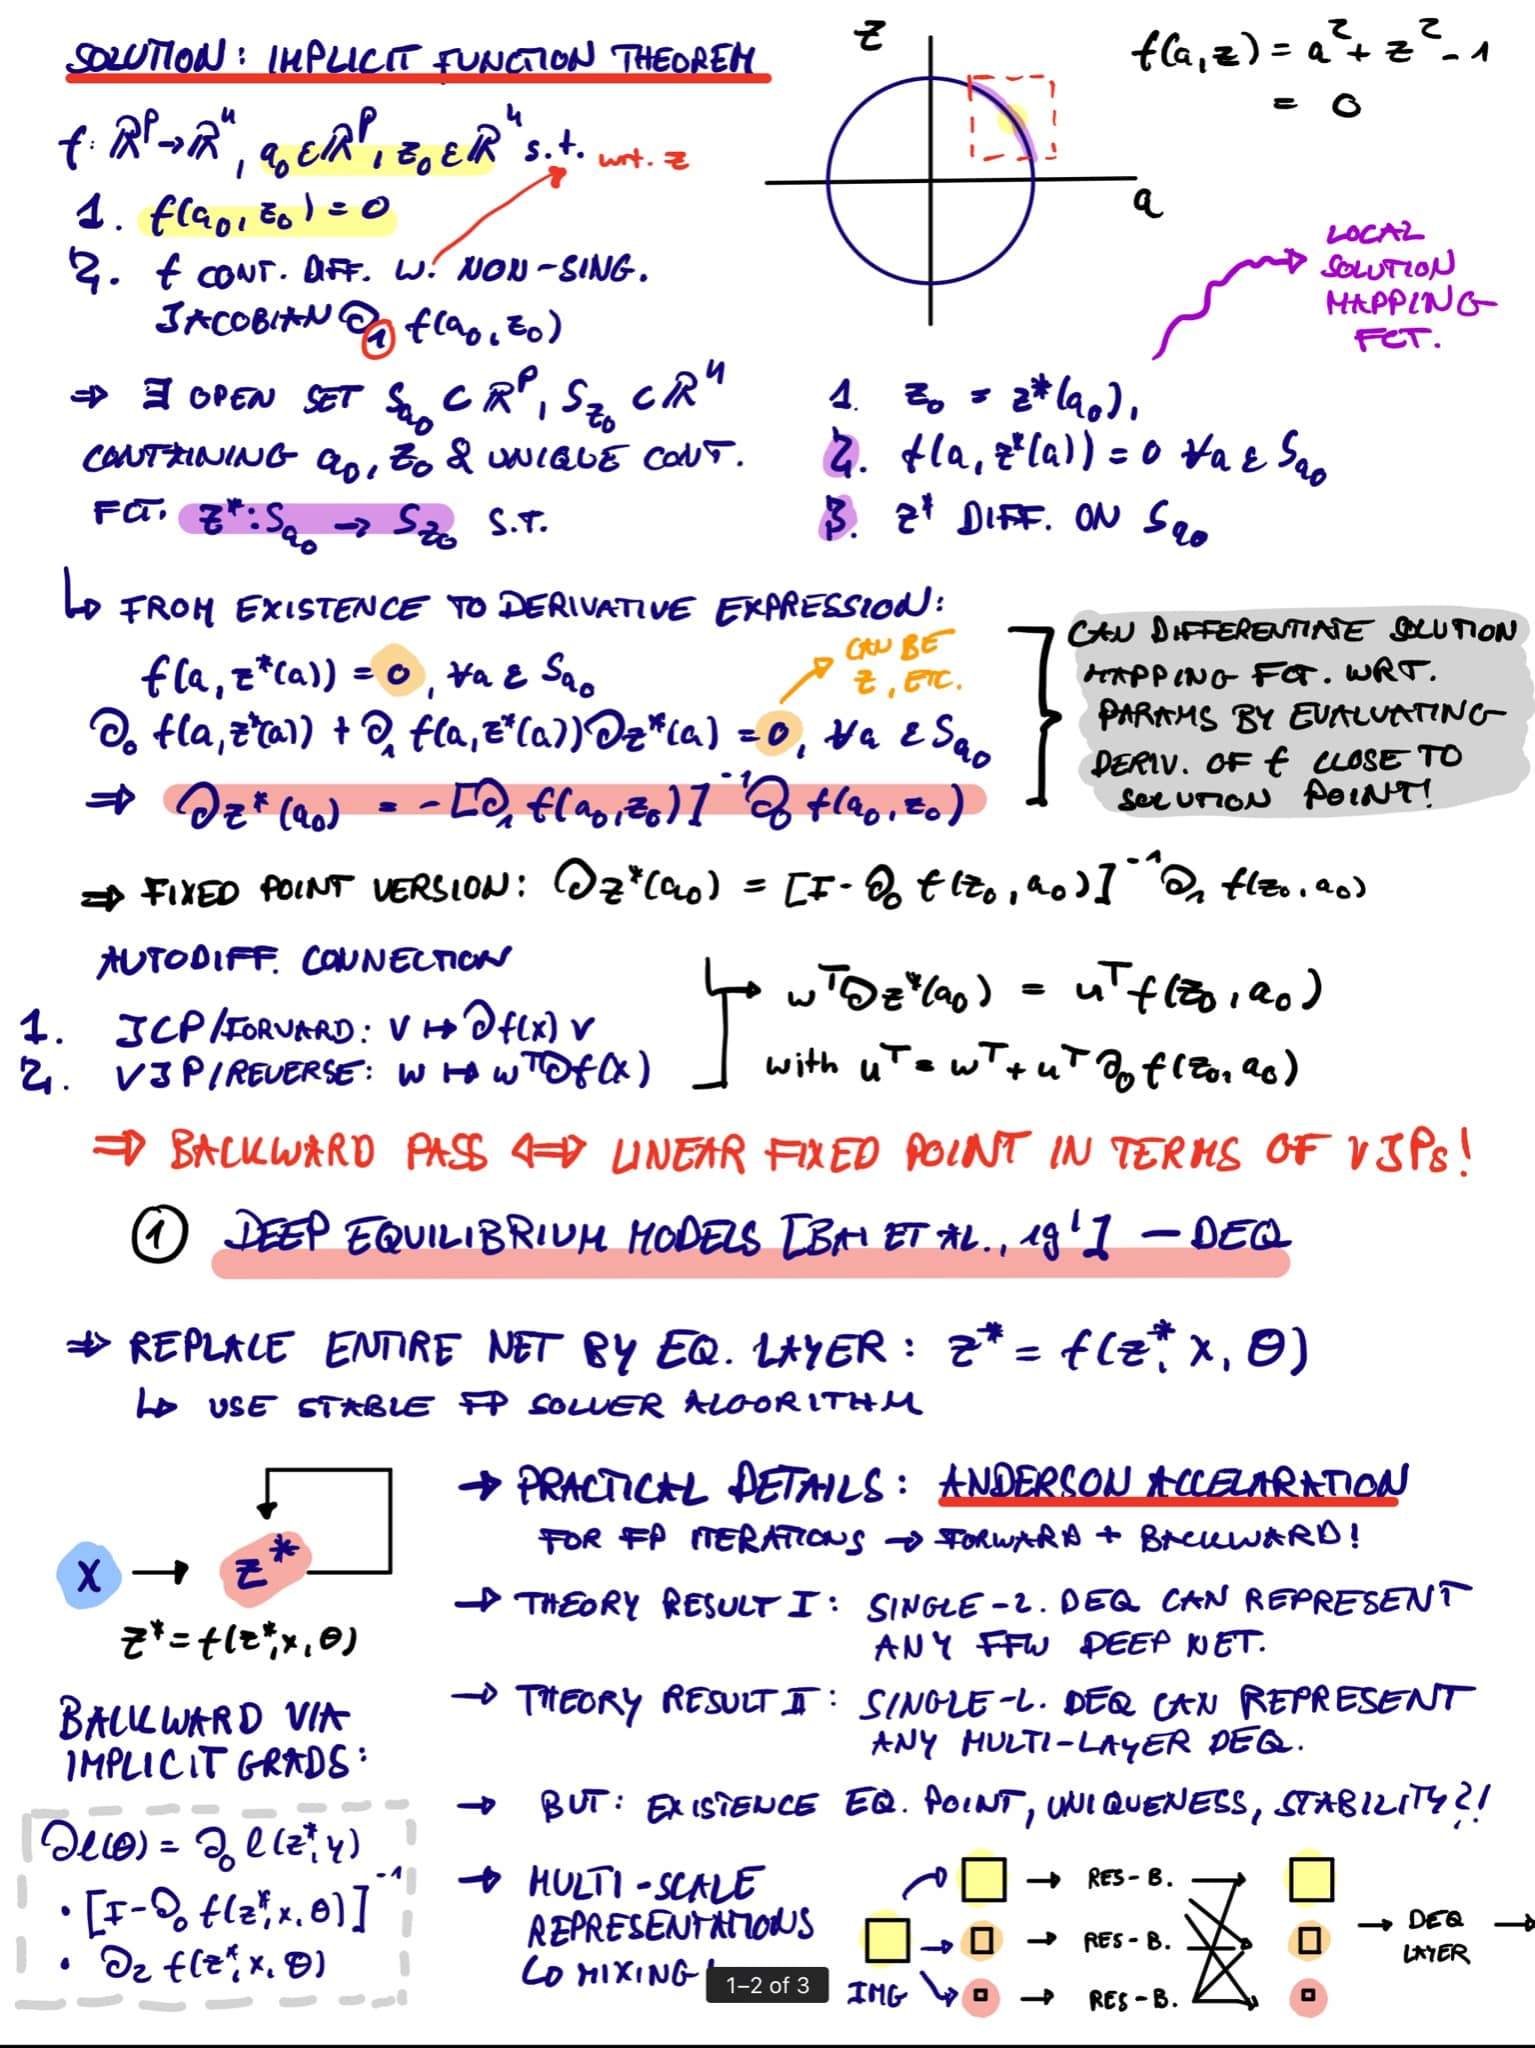 SOLUTION: IMPLICIT FUNCTION THEOREM
f: ℝᵖ→ℝⁿ, a₀ ε ℝᵖ, z₀ ε ℝⁿ s.t. wrt. z
1. f(a₀, z₀) = 0
2. f CONT. DIFF. w. NON-SING.
JACOBIAN ∂₁ f(a₀, z₀)
z
a
f(a, z) = a² + z² - 1
= 0
LOCAL
SOLUTION
MAPPING
FCT.
⇒ ∃ OPEN SET S_a₀ ⊂ ℝᵖ, S_z₀ ⊂ ℝⁿ
CONTAINING a₀, z₀ & UNIQUE CONT.
FCT. z*: S_a₀ → S_z₀ S.T.
1. z₀ = z*(a₀),
2. f(a, z*(a)) = 0 ∀a ε S_a₀
3. z* DIFF. ON S_a₀
↳ FROM EXISTENCE TO DERIVATIVE EXPRESSION:
f(a, z*(a)) = 0, ∀a ε S_a₀
CAN BE
z, ETC.
∂₀ f(a, z*(a)) + ∂₁ f(a, z*(a)) ∂z*(a) = 0, ∀a ε S_a₀
⇒ ∂z*(a₀) = -[∂₁ f(a₀, z₀)]⁻¹ ∂₀ f(a₀, z₀)
CAN DIFFERENTIATE SOLUTION
MAPPING FCT. WRT.
PARAMS BY EVALUATING
DERIV. OF f CLOSE TO
SOLUTION POINT!
⇒ FIXED POINT VERSION: ∂z*(a₀) = [I - ∂₀ f(z₀, a₀)]⁻¹ ∂₁ f(z₀, a₀)
AUTODIFF. CONNECTION
1. JCP/FORWARD: v ↦ ∂f(x) v
2. VJP/REVERSE: w ↦ wᵀ∂f(x)
→ wᵀ∂z*(a₀) = uᵀ f(z₀, a₀)
with uᵀ = wᵀ + uᵀ ∂₀ f(z₀, a₀)
⇒ BACKWARD PASS ⇔ LINEAR FIXED POINT IN TERMS OF VJPs!
① DEEP EQUILIBRIUM MODELS [BAI ET AL., 19'] – DEQ
⇒ REPLACE ENTIRE NET BY EQ. LAYER: z* = f(z*, x, θ)
↳ USE STABLE FP SOLVER ALGORITHM
x → z*
z* = f(z*, x, θ)
BACKWARD VIA
IMPLICIT GRADS:
∂l(θ) = ∂₀ l(z*, y)
· [I - ∂₀ f(z*, x, θ)]⁻¹
· ∂₂ f(z*, x, θ)
→ PRACTICAL DETAILS: ANDERSON ACCELARATION
FOR FP ITERATIONS → FORWARD + BACKWARD!
→ THEORY RESULT I: SINGLE-L. DEQ CAN REPRESENT
ANY FFW DEEP NET.
→ THEORY RESULT II: SINGLE-L. DEQ CAN REPRESENT
ANY MULTI-LAYER DEQ.
→ BUT: EXISTENCE EQ. POINT, UNIQUENESS, STABILITY?!
→ MULTI-SCALE
REPRESENTATIONS
↳ MIXING!
IMG
→ RES-B.
→ RES-B.
→ RES-B.
→ DEQ →
LAYER
1–2 of 3